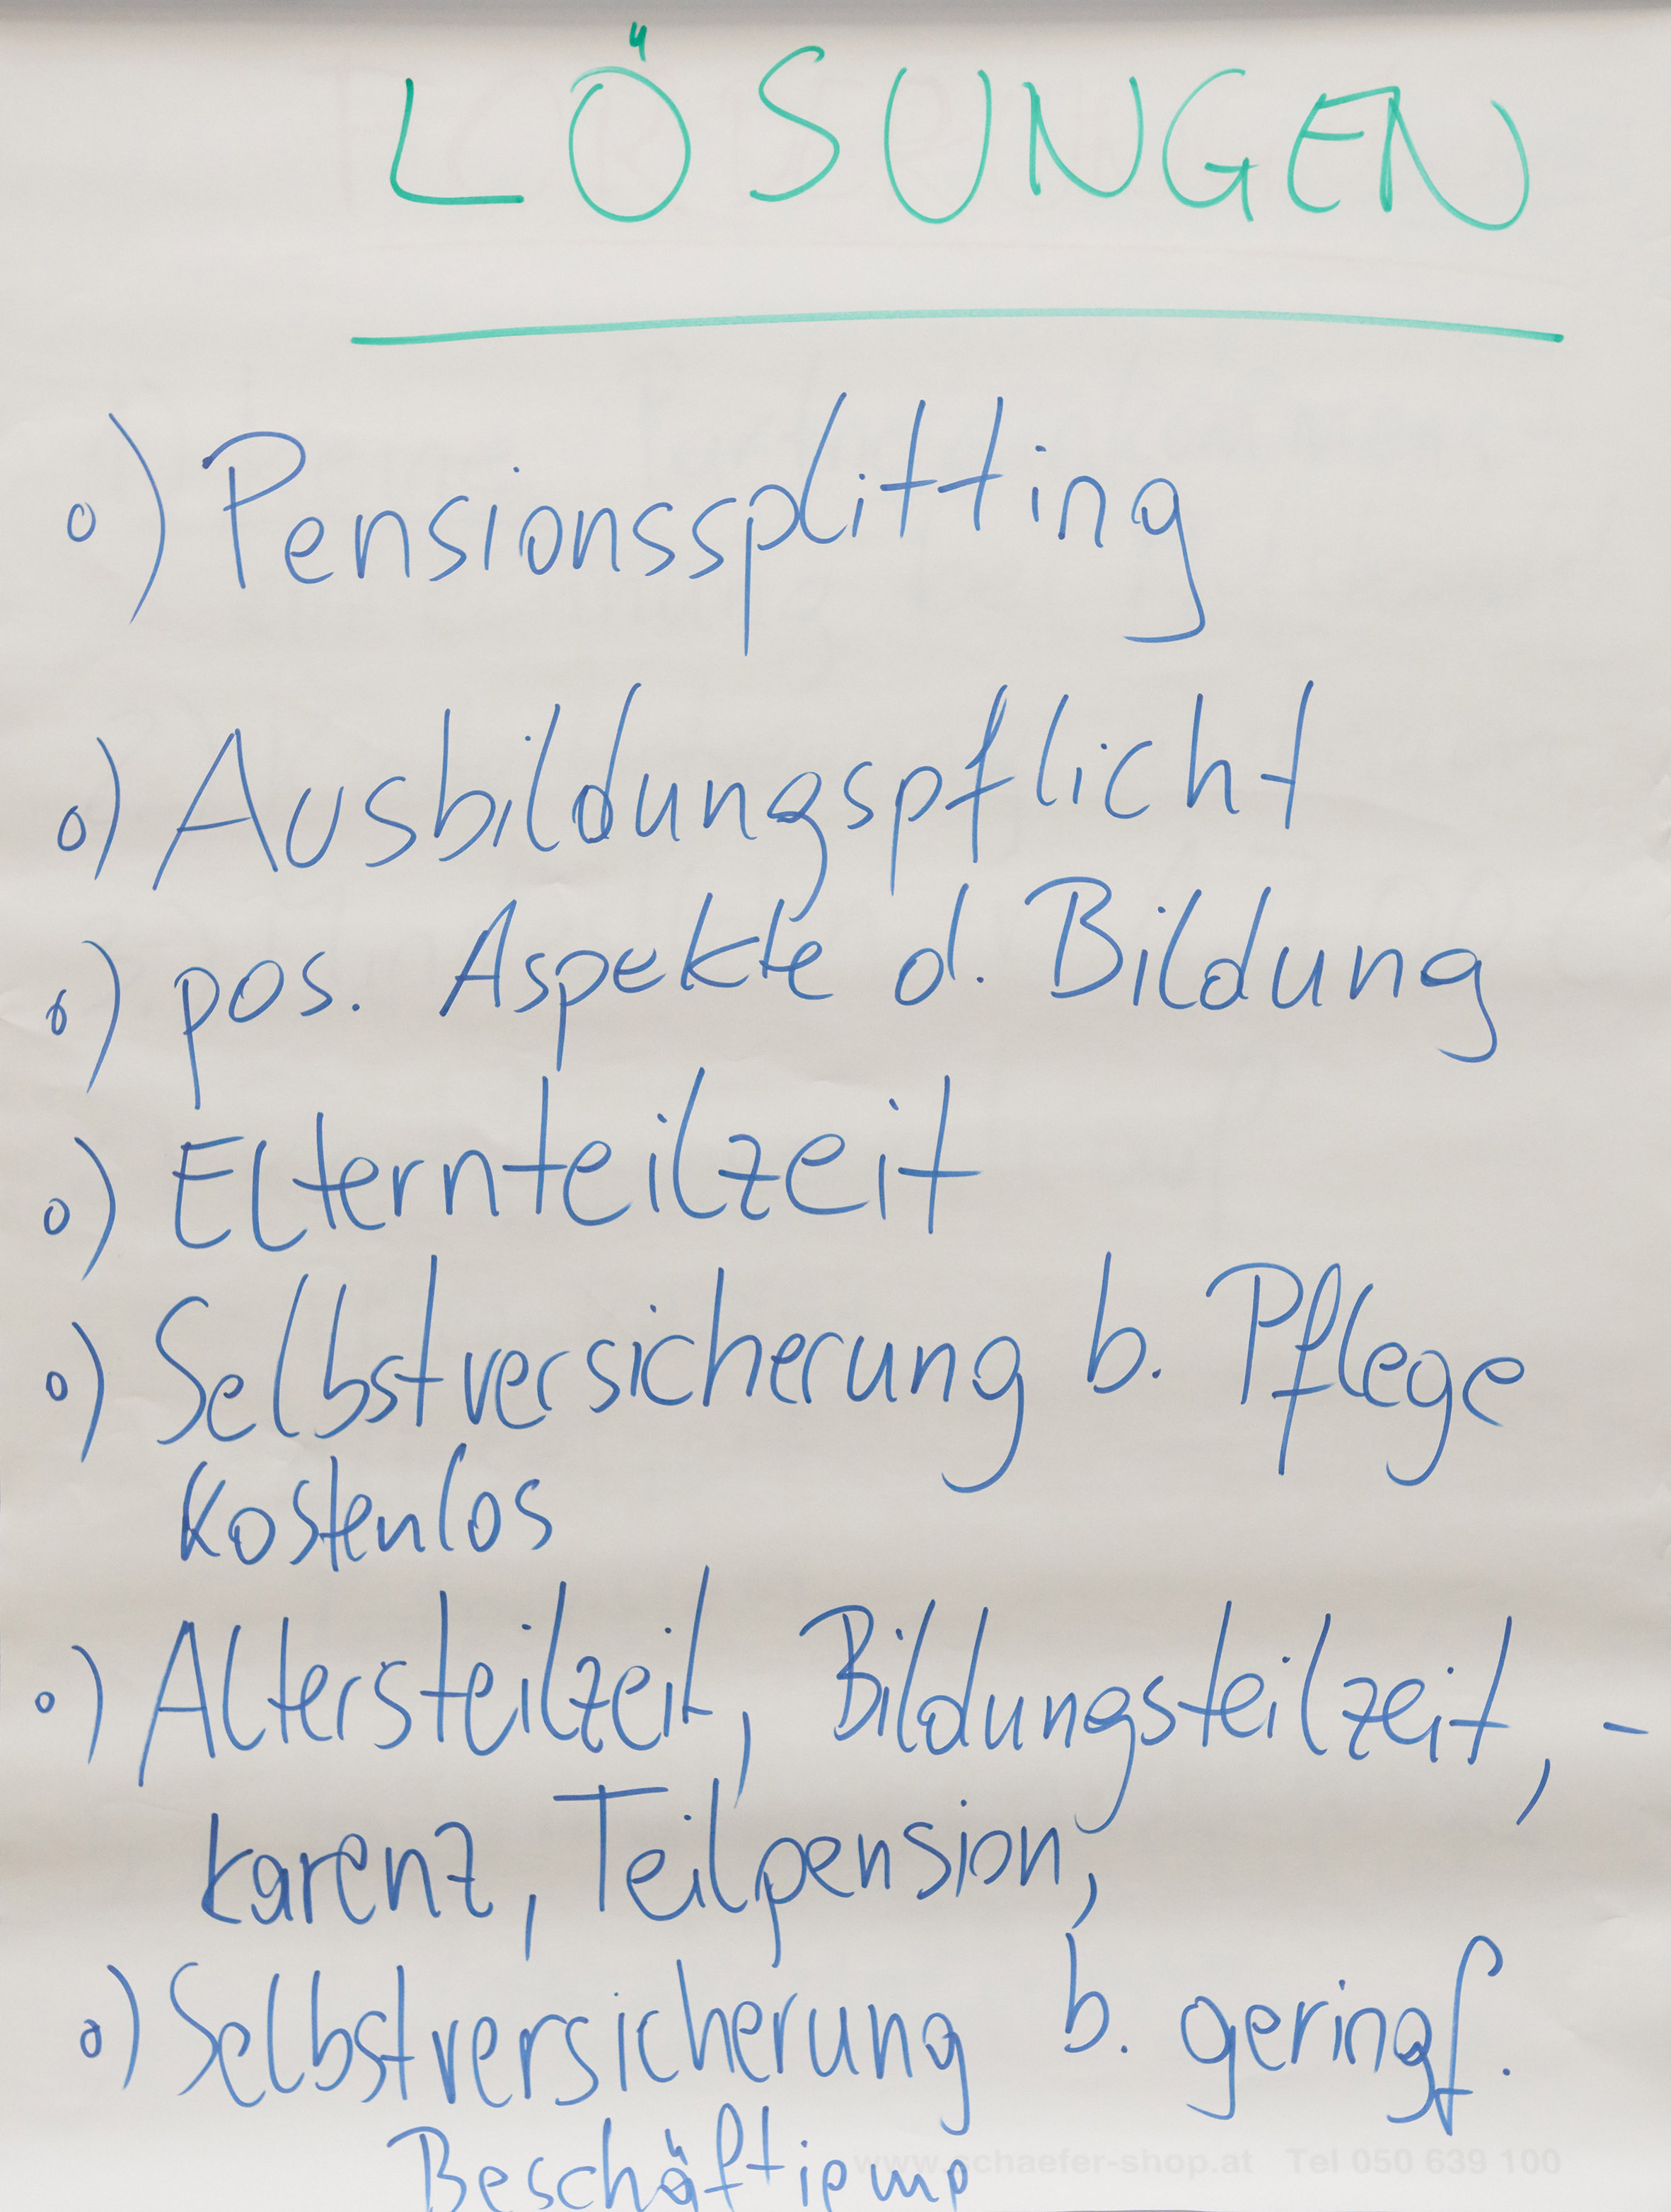 LÖSUNGEN
o) Pensionssplitting
o) Ausbildungspflicht
o) pos. Aspekte d. Bildung
o) Elternteilzeit
o) Selbstversicherung b. Pflege
kostenlos
o) Altersteilzeit, Bildungsteilzeit, -
karenz, Teilpension,
o) Selbstversicherung b. geringf.
Beschäftigung
www.schaefer-shop.at Tel 050 639 100